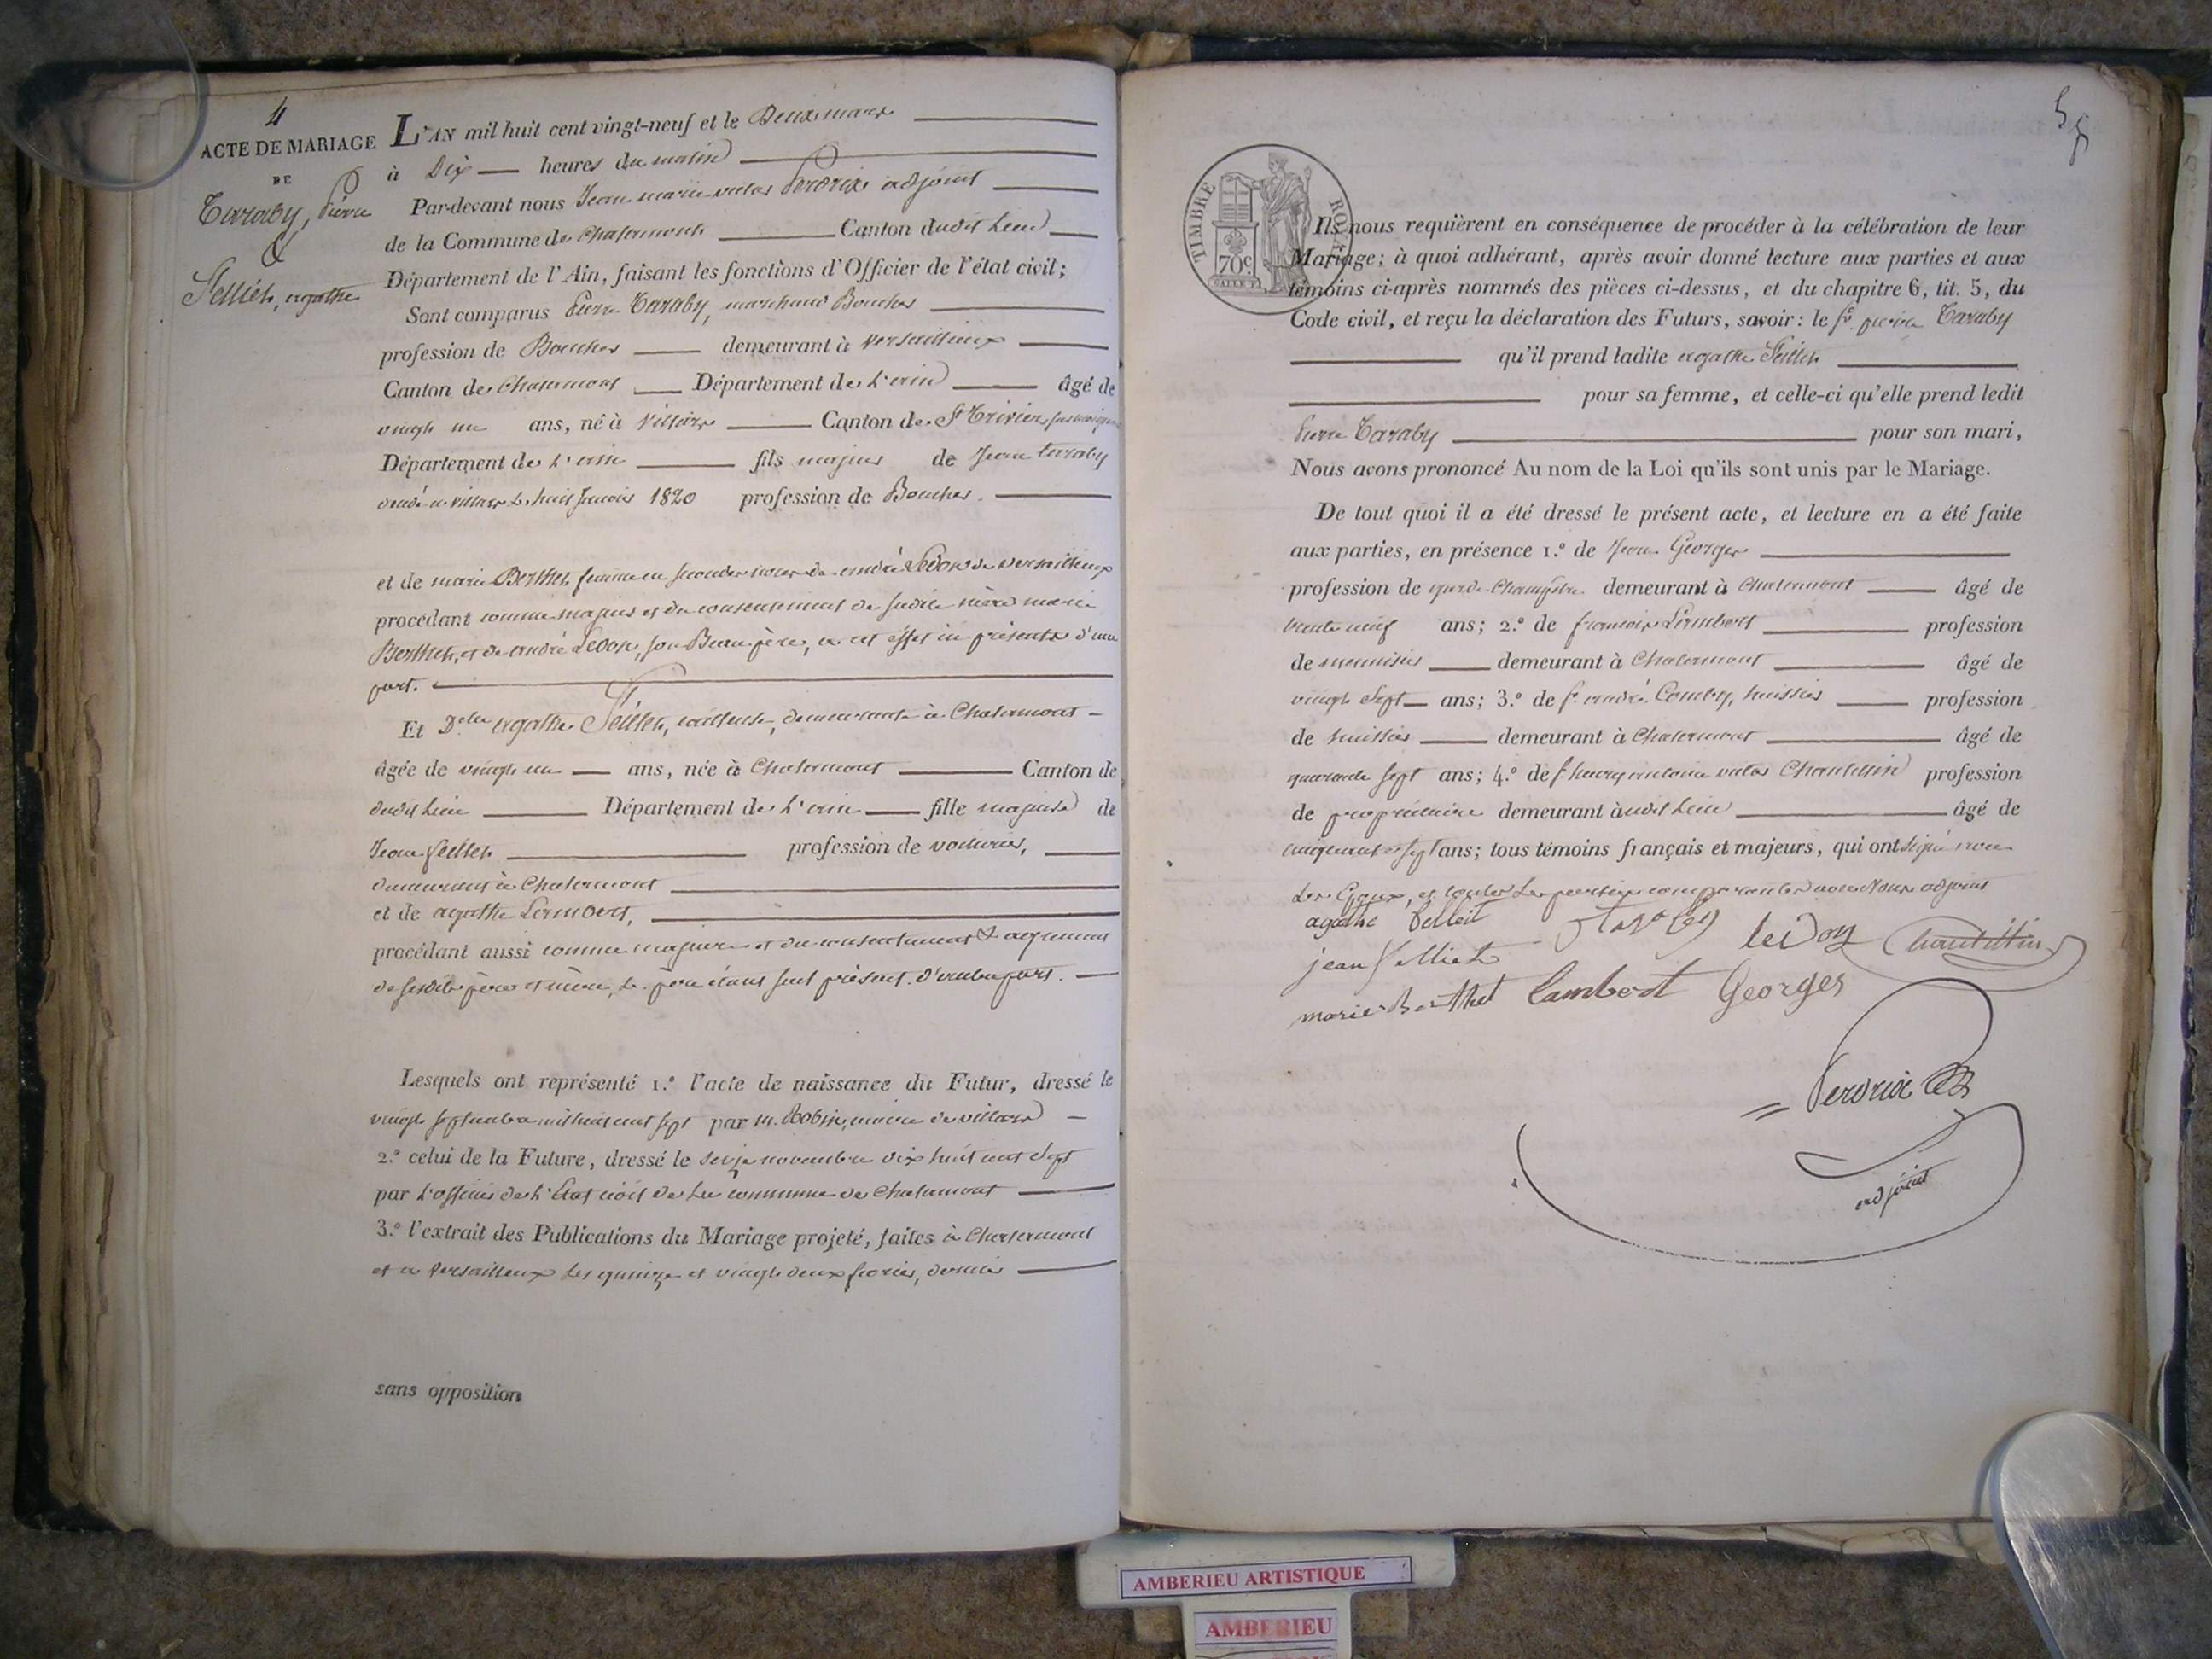 4
ACTE DE MARIAGE
DE
Taraby, Pierre
&
Felliet, agathe
L'AN mil huit cent vingt-neuf et le Deux mars
à Dix heures du matin
Par-devant nous Jean marie victor Perdrix adjoint
de la Commune de Chalamont Canton dudit Lieu
Département de l'Ain, faisant les fonctions d'Officier de l'état civil;
Sont comparus Pierre Taraby, marchand Boucher
profession de Boucher demeurant à Versailleux
Canton de Chalamont Département de L'ain âgé de
vingt un ans, né à Villars Canton de St Trivier
Département de L'ain fils majeur de Jean Terraby
décédé à Villars Le huit Janvier 1820 profession de Boucher.
et de marie Berthet femme en secondes noces de andré Ledon de versailleux
procédant comme majeur et du consentement de sadite mère marie
Berthet, et de andré Ledon, son Beau père, à cet effet ici présents d'une
part.
Et Delle agathe Felliet, tailleuse, demeurante à Chalamont
âgée de vingt un ans, née à Chalamont Canton de
dudit Lieu Département de L'ain fille majeure de
Jean felliet profession de voiturier,
demeurant à Chalamont
et de agathe Lambert,
procédant aussi comme majeure et du consentement & agrément
de sesdits père et mère, Le père étant seul présent. D'autre part.
Lesquels ont représenté 1.° l'acte de naissance du Futur, dressé le
vingt septembre mil huit cent sept par M. Robin, maire de villars
2.° celui de la Future, dressé le seize novembre dix huit cent sept
par L'officier de L'État civil de La commune de Chalamont
3.° l'extrait des Publications du Mariage projeté, faites à Chalamont
et à Versailleux Les quinze et vingt deux février, dernier
sans opposition
5
TIMBRE ROYAL
70c
Ils nous requièrent en conséquence de procéder à la célébration de leur
Mariage; à quoi adhérant, après avoir donné lecture aux parties et aux
témoins ci-après nommés des pièces ci-dessus, et du chapitre 6, tit. 5, du
Code civil, et reçu la déclaration des Futurs, savoir: le Sr. pierre Taraby
qu'il prend ladite agathe Felliet
pour sa femme, et celle-ci qu'elle prend ledit
Pierre Taraby pour son mari,
Nous avons prononcé Au nom de la Loi qu'ils sont unis par le Mariage.
De tout quoi il a été dressé le présent acte, et lecture en a été faite
aux parties, en présence 1.° de Jean Georges
profession de garde Champêtre demeurant à Chalamont âgé de
trente neuf ans; 2.° de francois Lambert profession
de menuisier demeurant à Chalamont âgé de
vingt Sept ans; 3.° de Sr andré Comby, huissier profession
de huissier demeurant à Chalamont âgé de
quarante sept ans; 4.° de Sr. henry antoine victor Chantellin profession
de propriétaire demeurant audit Lieu âgé de
cinquante sept ans; tous témoins français et majeurs, qui ont signé avec
Les Epoux, et toutes Les parties comparantes avec Nous adjoint
agathe felleit Taraby ledon Chantellin
jean felliet
marie Berthet Lambert Georges
Perdrix
adjoint
AMBERIEU ARTISTIQUE
AMBERIEU